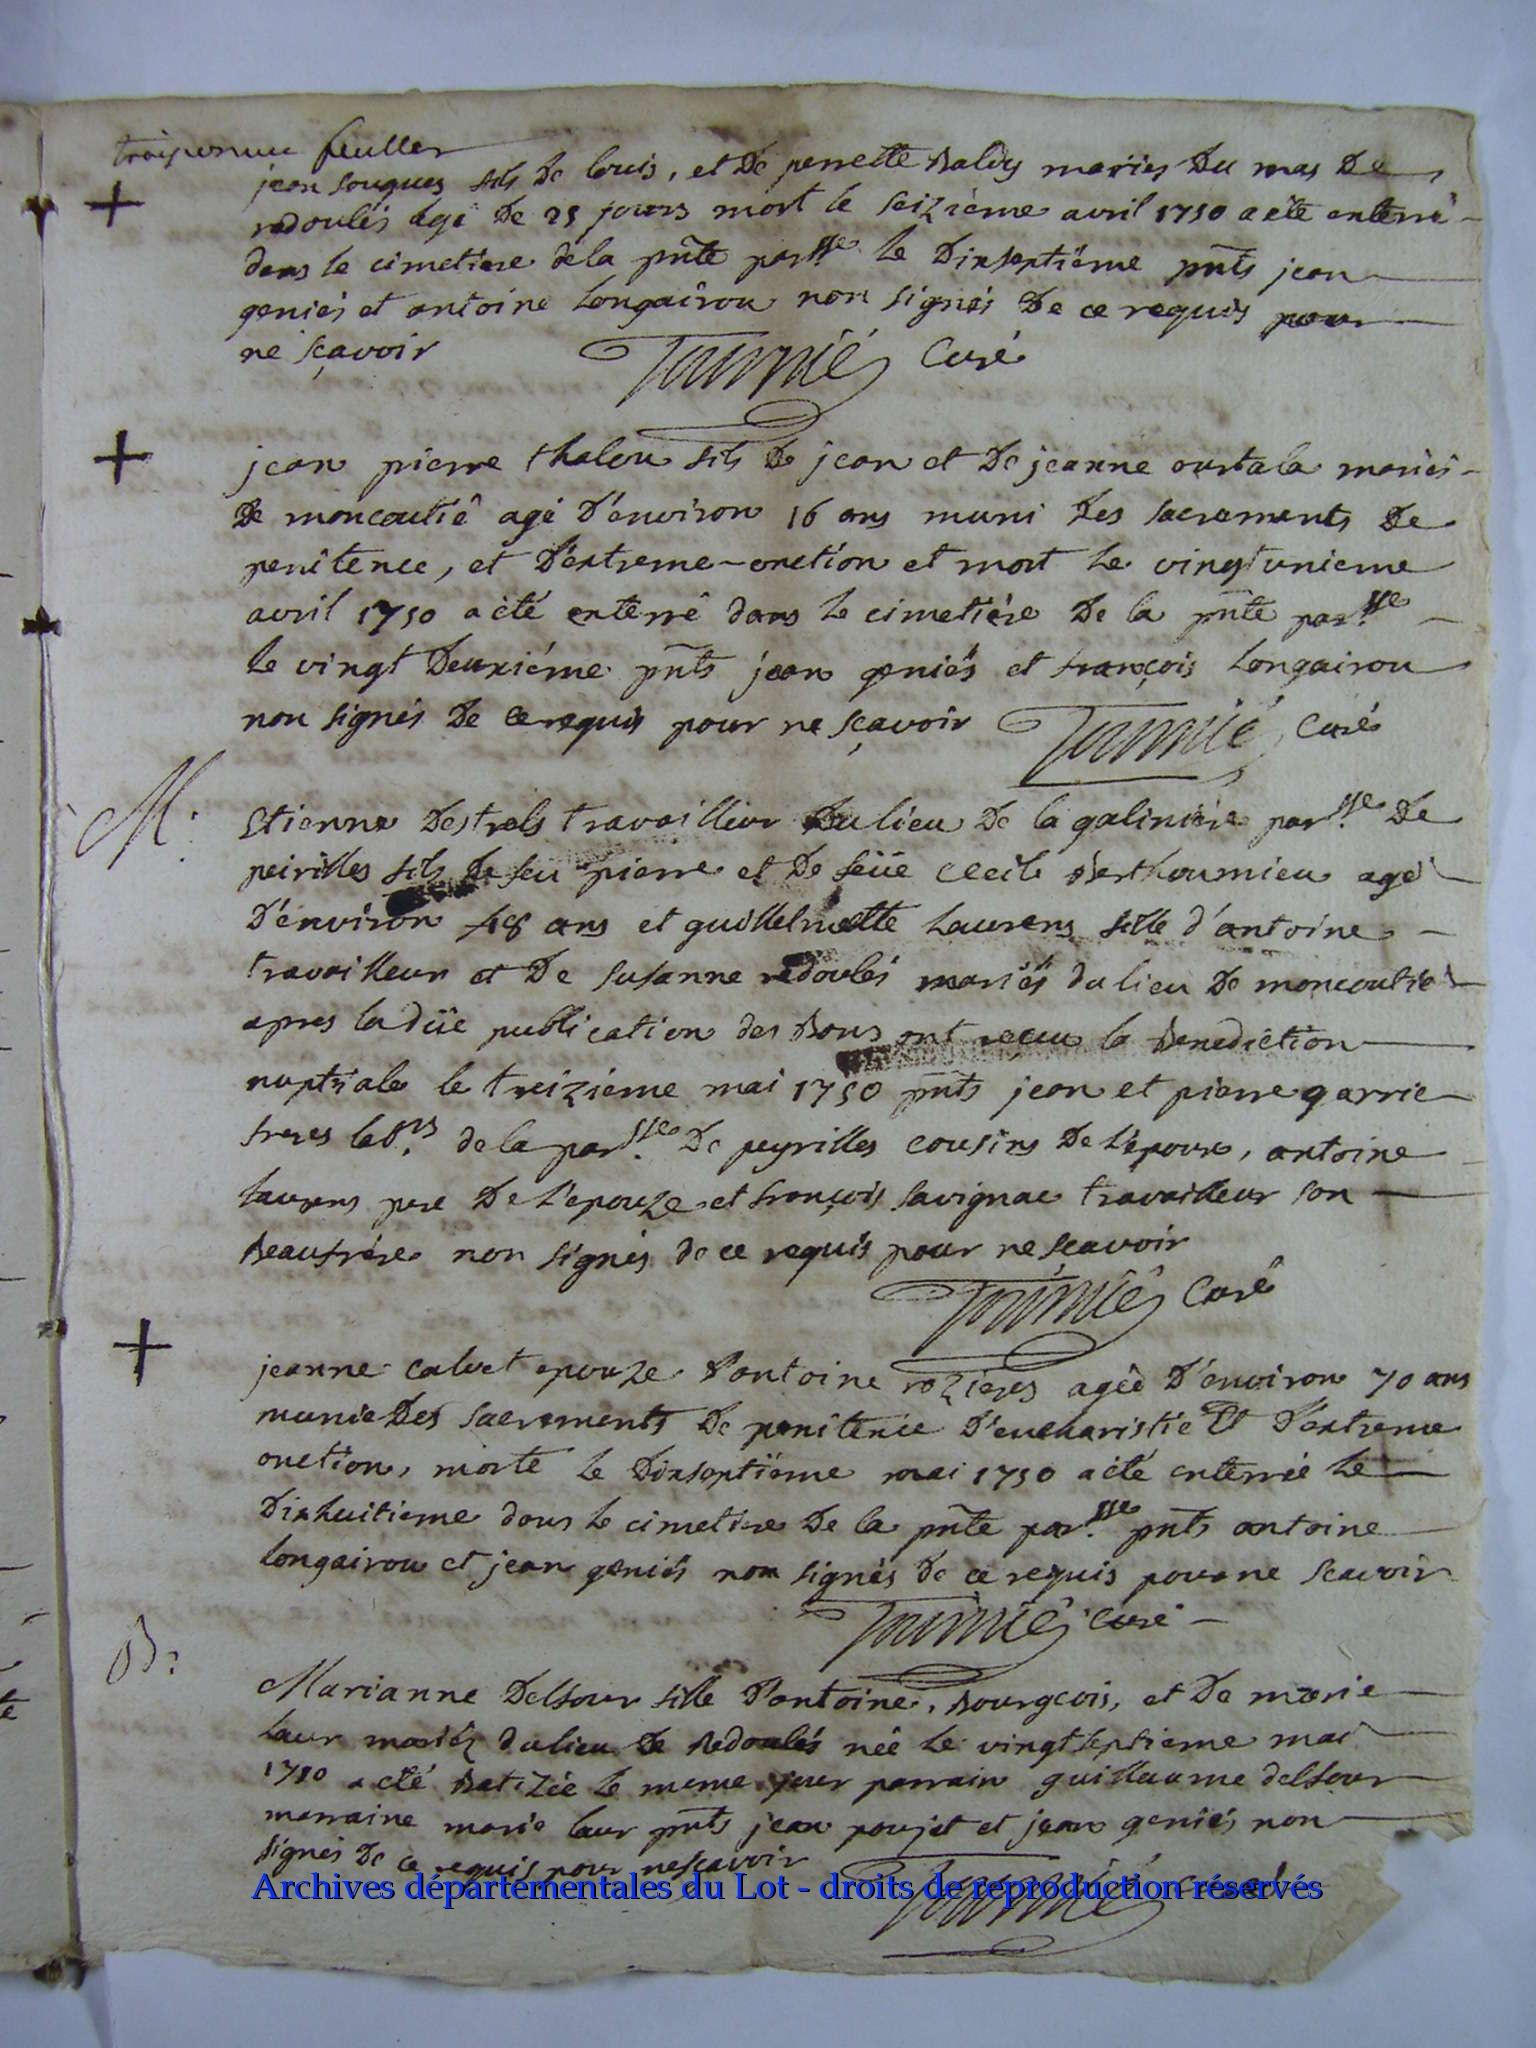 troisieme feuillet
+
jean souques fils de louis, et de perrette Baldy mariés du mas de
redoulés agé de 25 jours mort le seizième avril 1750 a eté enterré
dans le cimetiere de la pñte par.sse le dixseptiéme pñts jean
geniés et antoine longairou non signés de ce requis pour
ne sçavoir Tournié Curé
+
jean pierre thalou fils de jean et de jeanne ourtala mariés
de moncoutié agé d'environ 16 ans muni des sacrements de
penitence, et d'extreme-onction et mort le vingtunieme
avril 1750 a eté enterré dans le cimetiére de la pñte par.sse
le vingt deuxiéme pñts jean geniés et françois longairou
non signés de ce requis pour ne sçavoir Tournié Curé
M.
Etienne Destrels travailleur du lieu de la galiniére par.sse de
peirilles fils de feu pierre et de feüe Cecile Berthoumieu agé
d'environ 48 ans et guillelmette Laurens fille d'antoine
travailleur et de susanne redoulés mariés du lieu de moncoutié
apres la düe publication des Bans ont reçeu la Benediction
nuptiale le treizieme mai 1750 pñts jean et pierre garric
freres lab.rs de la par.sse de peyrilles cousins de l'epoux, antoine
laurens pere de l'epouze et françois savignac travailleur son
Beaufrére non signés de ce requis pour ne sçavoir
Tournié Curé
+
jeanne calvet epouze d'antoine rozieres agée d'environ 70 ans
munie des sacrements de penitence d'eucharistie Et d'extreme
onction, morte le dixseptiéme mai 1750 a eté enterrée le
dixhuitieme dans le cimetiere de la pñte par.sse pñts antoine
longairou et jean geniés non signés de ce requis pour ne scavoir
Tournié Curé
B.
Marianne Delsour fille d'antoine, Bourgeois, et de marie
laur mariés du lieu de Redoulés née le vingtseptieme mai
1750 a eté Batizée le meme jour parrain guillaume delsour
marraine marie laur pñts jean poujet et jean geniés non
signés de ce requis pour ne scavoir
Tournié Curé
Archives départementales du Lot - droits de reproduction réservés